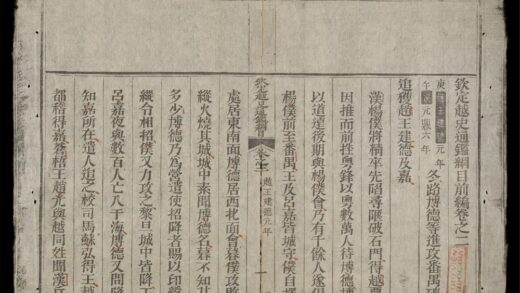 欽定越史通鑑綱目前編卷之二
庚午
元年
漢元鼎六年
冬路博德等進攻番禺破
追獲趙王建德及嘉
漢楊僕將精卒先陷尋陿破石門得越
因推而前挫粤鋒以粤數萬人待博德博
以道遠後期與楊僕會乃有千餘人遂俱
楊僕前至番禺王及呂嘉皆城守僕自擇
欽定越史通鑑綱目 卷之二 趙王建德元年
處居東南面博德居西北面會暮僕攻敗
縱火燒其城城中素聞博德名暮不知其
多少博德乃為營遣使招降者賜以印綬
縱令相招僕又力攻之黎旦城中皆降
呂嘉夜與數百人亡入于海博德又問降
知嘉所在遣人追之校司馬蘇弘得王越
都稽得嘉蒼梧王趙光與越同姓聞漢兵